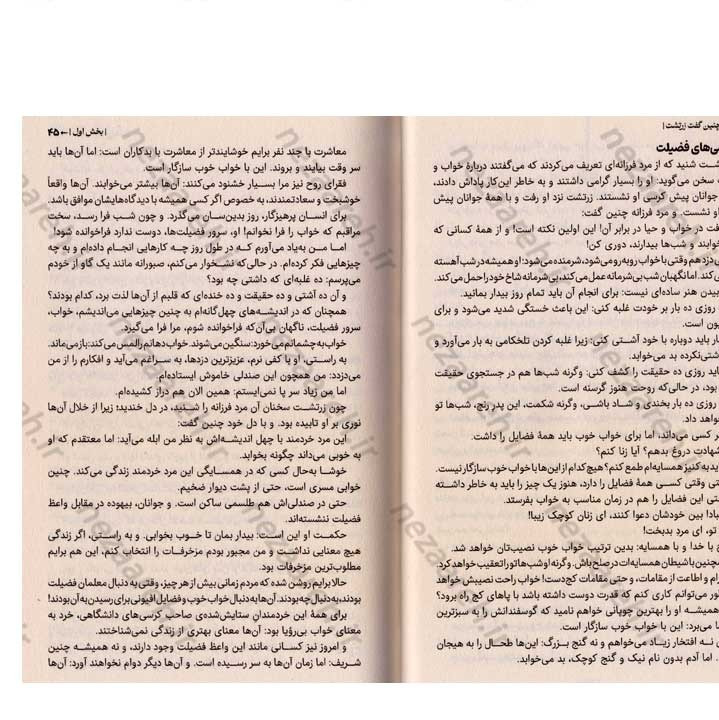 چنین گفت زرتشت |
فضیلت
شنید که از مرد فرزانه‌ای تعریف می‌کردند که می‌گفتند دربارهٔ خواب و
سخن می‌گوید: او را بسیار گرامی داشتند و به خاطر این‌کار پاداش دادند،
جوانان پیش کرسی او نشستند. زرتشت نزد او رفت و با همهٔ جوانان پیش
او نشست. و مرد فرزانه چنین گفت:
در خواب و حیا در برابر آن! این اولین نکته است! و از همهٔ کسانی که
خوابند و شب‌ها بیدارند، دوری کن!
دزد هم وقتی با خواب روبه‌رو می‌شود، شرمنده می‌شود: او همیشه در شب آهسته
می‌کند. اما نگهبان شب بی‌شرمانه عمل می‌کند، بی‌شرمانه شاخ خود را حمل می‌کند.
هنر ساده‌ای نیست: برای انجام آن باید تمام روز بیدار بمانید.
روزی ده بار بر خودت غلبه کنی: این باعث خستگی شدید می‌شود و برای
است.
باید دوباره با خود آشتی کنی: زیرا غلبه کردن تلخکامی به بار می‌آورد و
بد می‌خوابد.
باید روزی ده حقیقت را کشف کنی: وگرنه شب‌ها هم در جستجوی حقیقت
بود، در حالی‌که روحت هنوز گرسنه است.
روزی ده بار بخندی و شاد باشی، وگرنه شکمت، این پدرِ رنج، شب‌ها تو
داد.
کسی می‌داند، اما برای خواب خوب باید همهٔ فضایل را داشت.
دروغ بدهم؟ آیا زنا کنم؟
به کنیز همسایه‌ام طمع کنم؟ هیچ‌کدام از این‌ها با خواب خوب سازگار نیست.
وقتی کسی همهٔ فضایل را دارد، هنوز یک چیز را باید به خاطر داشته
این فضایل را هم در زمان مناسب به خواب بفرستد.
بین خودشان دعوا کنند، ای زنان کوچک زیبا!
تو، ای مرد بدبخت!
با خدا و با همسایه: بدین ترتیب خواب خوب نصیب‌تان خواهد شد.
همچنین با شیطان همسایه‌ات در صلح باش. وگرنه او شب‌ها تو را تعقیب خواهد کرد.
و اطاعت از مقامات، و حتی مقامات کج‌دست! خواب راحت نصیبش خواهد
می‌توانم کاری کنم که قدرت دوست داشته باشد با پاهای کج راه برود؟
همیشه او را بهترین چوپانی خواهم نامید که گوسفندانش را به سبزترین
می‌برد: این با خواب خوب سازگار است.
نه افتخار زیاد می‌خواهم و نه گنج بزرگ: این‌ها طحال را به هیجان
اما آدم بدون نام نیک و گنج کوچک، بد می‌خوابد.
| بخش اول | ← ۴۵
معاشرت با چند نفر برایم خوشایندتر از معاشرت با بدکاران است: اما آن‌ها باید
سر وقت بیایند و بروند. این با خواب خوب سازگار است.
فقرای روح نیز مرا بسیار خشنود می‌کنند: آن‌ها بیشتر می‌خوابند. آن‌ها واقعاً
خوشبخت و سعادتمندند، به خصوص اگر کسی همیشه با دیدگاه‌هایشان موافق باشد.
برای انسان پرهیزگار، روز بدین‌سان می‌گذرد. و چون شب فرا رسد، سخت
مراقبم که خواب را فرا نخوانم! او، سرور فضیلت‌ها، دوست ندارد فراخوانده شود!
اما من به‌یاد می‌آورم که در طول روز چه کارهایی انجام داده‌ام و به چه
چیزهایی فکر کرده‌ام. در حالی‌که نشخوار می‌کنم، صبورانه مانند یک گاو از خودم
می‌پرسم: ده غلبه‌ای که داشتی چه بود؟
و آن ده آشتی و ده حقیقت و ده خنده‌ای که قلبم از آن‌ها لذت برد، کدام بودند؟
همچنان که در اندیشه‌های چهل‌گانه‌ام به چنین چیزهایی می‌اندیشم، خواب،
سرور فضیلت، ناگهان بی‌آن‌که فراخوانده شوم، مرا فرا می‌گیرد.
خواب به چشمانم می‌خورد: سنگین می‌شوند. خواب دهانم را لمس می‌کند: باز می‌ماند.
به راستی، او با کفی نرم، عزیزترین دزدها، به سراغم می‌آید و افکارم را از من
می‌دزدد: من همچون این صندلی خاموش ایستاده‌ام.
اما من زیاد سر پا نمی‌ایستم: همین الان هم دراز کشیده‌ام.
چون زرتشت سخنان آن مرد فرزانه را شنید، در دل خندید؛ زیرا از خلال آن‌ها
نوری بر او تابیده بود. و با دل خود چنین گفت:
این مرد خردمند با چهل اندیشه‌اش به نظر من ابله می‌آید: اما معتقدم که او
به خوبی می‌داند چگونه بخوابد.
خوشا به‌حال کسی که در همسایگی این مرد خردمند زندگی می‌کند. چنین
خوابی مسری است، حتی از پشت دیوار ضخیم.
حتی در صندلی‌اش هم طلسمی ساکن است. و جوانان، بیهوده در مقابل واعظ
فضیلت ننشسته‌اند.
حکمت او این است: بیدار بمان تا خوب بخوابی. و به راستی، اگر زندگی
هیچ معنایی نداشت و من مجبور بودم مزخرفات را انتخاب کنم، این هم برایم
مطلوب‌ترین مزخرفات بود.
حالا برایم روشن شده که مردم زمانی بیش از هر چیز، وقتی به دنبال معلمان فضیلت
بودند، به دنبال چه بودند. آن‌ها به دنبال خواب خوب و فضایل افیونی برای رسیدن به آن بودند!
برای همهٔ این خردمندانِ ستایش‌شده‌ی صاحب کرسی‌های دانشگاهی، خرد به
معنای خواب بی‌رؤیا بود: آن‌ها معنای بهتری از زندگی نمی‌شناختند.
و امروز نیز کسانی مانند این واعظ فضیلت وجود دارند، و نه همیشه چنین
شریف: اما زمان آن‌ها به سر رسیده است. و آن‌ها دیگر دوام نخواهند آورد: آن‌ها
nezaareh.ir